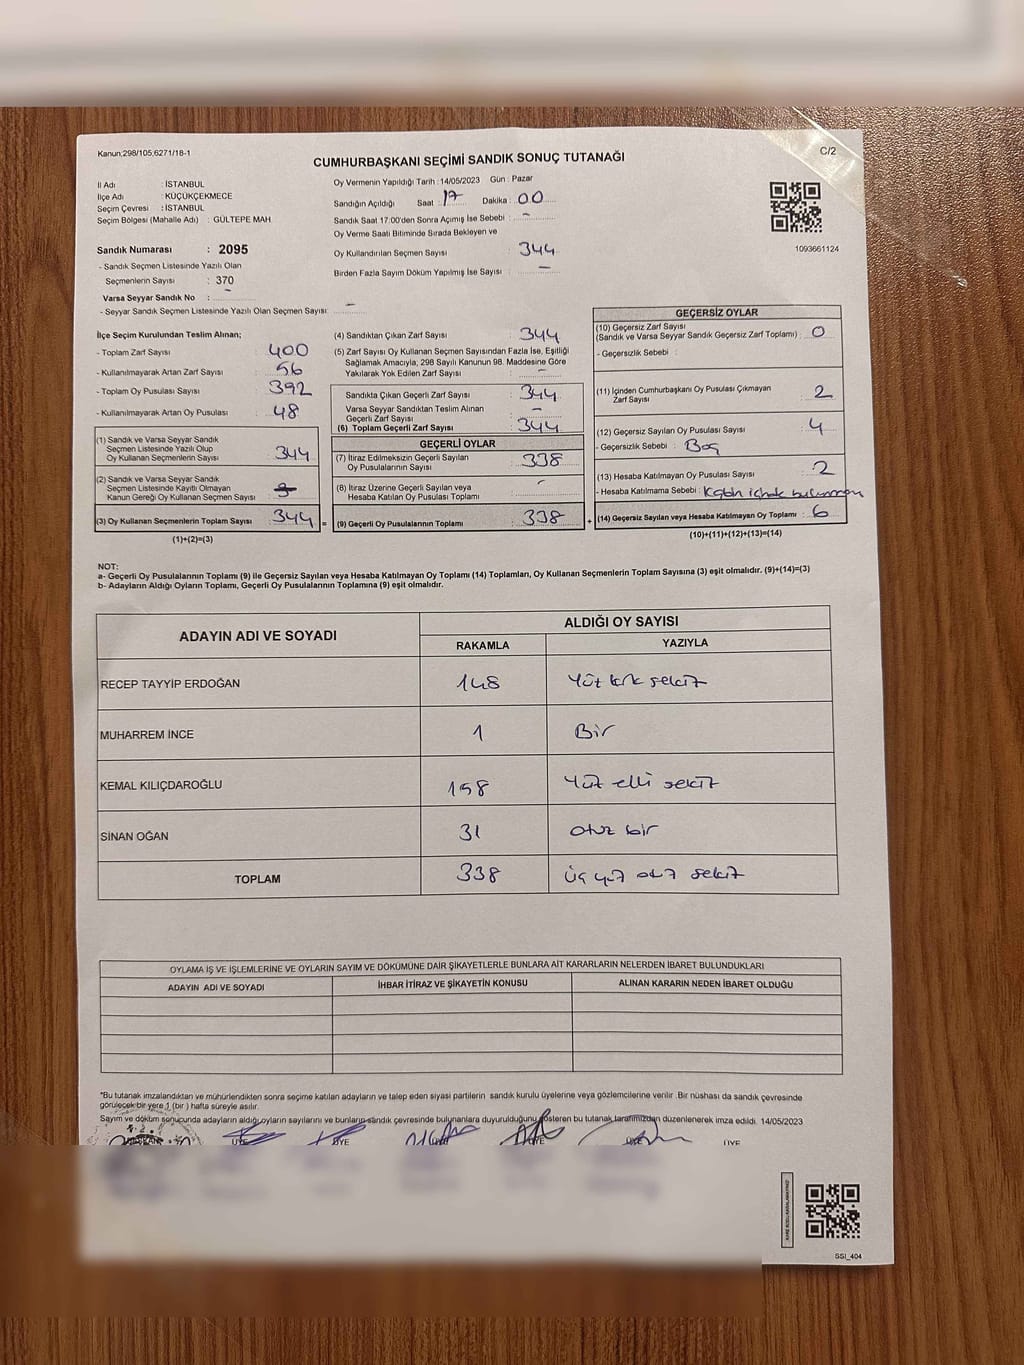 Kanun;298/105,6271/18-1
CUMHURBAŞKANI SEÇİMİ SANDIK SONUÇ TUTANAĞI
C/2
İl Adı : İSTANBUL
İlçe Adı : KÜÇÜKÇEKMECE
Seçim Çevresi : İSTANBUL
Seçim Bölgesi (Mahalle Adı) : GÜLTEPE MAH.
Sandık Numarası : 2095
- Sandık Seçmen Listesinde Yazılı Olan
Seçmenlerin Sayısı : 370
Varsa Seyyar Sandık No : -
- Seyyar Sandık Seçmen Listesinde Yazılı Olan Seçmen Sayısı: -
Oy Vermenin Yapıldığı Tarih : 14/05/2023 Gün : Pazar
Sandığın Açıldığı Saat : 17 Dakika : 00
Sandık Saat 17:00'den Sonra Açımış İse Sebebi : -
Oy Verme Saati Bitiminde Sırada Bekleyen ve
Oy Kullandırılan Seçmen Sayısı : 344
Birden Fazla Sayım Döküm Yapılmış İse Sayısı : -
1093661124
İlçe Seçim Kurulundan Teslim Alınan;
- Toplam Zarf Sayısı : 400
- Kullanılmayarak Artan Zarf Sayısı : 56
- Toplam Oy Pusulası Sayısı : 392
- Kullanılmayarak Artan Oy Pusulası : 48
(1) Sandık ve Varsa Seyyar Sandık
Seçmen Listesinde Yazılı Olup
Oy Kullanan Seçmenlerin Sayısı : 344
(2) Sandık ve Varsa Seyyar Sandık
Seçmen Listesinde Kayıtlı Olmayan
Kanun Gereği Oy Kullanan Seçmen Sayısı :
(3) Oy Kullanan Seçmenlerin Toplam Sayısı : 344 =
(1)+(2)=(3)
(4) Sandıktan Çıkan Zarf Sayısı : 344
(5) Zarf Sayısı Oy Kullanan Seçmen Sayısından Fazla İse, Eşitliği
Sağlamak Amacıyla; 298 Sayılı Kanunun 98. Maddesine Göre
Yakılarak Yok Edilen Zarf Sayısı : -
Sandıkta Çıkan Geçerli Zarf Sayısı : 344
Varsa Seyyar Sandıktan Teslim Alınan
Geçerli Zarf Sayısı : -
(6) Toplam Geçerli Zarf Sayısı : 344
GEÇERLİ OYLAR
(7) İtiraz Edilmeksizin Geçerli Sayılan
Oy Pusulalarının Sayısı : 338
(8) İtiraz Üzerine Geçerli Sayılan veya
Hesaba Katılan Oy Pusulası Toplamı : -
(9) Geçerli Oy Pusulalarının Toplamı : 338 +
GEÇERSİZ OYLAR
(10) Geçersiz Zarf Sayısı
(Sandık ve Varsa Seyyar Sandık Geçersiz Zarf Toplamı) : 0
- Geçersizlik Sebebi :
(11) İçinden Cumhurbaşkanı Oy Pusulası Çıkmayan
Zarf Sayısı : 2
(12) Geçersiz Sayılan Oy Pusulası Sayısı : 4
- Geçersizlik Sebebi : Boş
(13) Hesaba Katılmayan Oy Pusulası Sayısı : 2
- Hesaba Katılmama Sebebi :
(14) Geçersiz Sayılan veya Hesaba Katılmayan Oy Toplamı : 6
(10)+(11)+(12)+(13)=(14)
NOT:
a- Geçerli Oy Pusulalarının Toplamı (9) ile Geçersiz Sayılan veya Hesaba Katılmayan Oy Toplamı (14) Toplamları, Oy Kullanan Seçmenlerin Toplam Sayısına (3) eşit olmalıdır. (9)+(14)=(3)
b- Adayların Aldığı Oyların Toplamı, Geçerli Oy Pusulalarının Toplamına (9) eşit olmalıdır.
ADAYIN ADI VE SOYADI
ALDIĞI OY SAYISI
RAKAMLA YAZIYLA
RECEP TAYYİP ERDOĞAN 148 Yüz kırk sekiz
MUHARREM İNCE 1 Bir
KEMAL KILIÇDAROĞLU 158 Yüz elli sekiz
SİNAN OĞAN 31 otuz bir
TOPLAM 338 Üç yüz otuz sekiz
OYLAMA İŞ VE İŞLEMLERİNE VE OYLARIN SAYIM VE DÖKÜMÜNE DAİR ŞİKAYETLERLE BUNLARA AİT KARARLARIN NELERDEN İBARET BULUNDUKLARI
ADAYIN ADI VE SOYADI İHBAR İTİRAZ VE ŞİKAYETİN KONUSU ALINAN KARARIN NEDEN İBARET OLDUĞU
*Bu tutanak imzalandıktan ve mühürlendikten sonra seçime katılan adayların ve talep eden siyasi partilerin sandık kurulu üyelerine veya gözlemcilerine verilir .Bir nüshası da sandık çevresinde
görülecek bir yere 1 (bir ) hafta süreyle asılır.
Sayım ve döküm sonucunda adayların aldığı oyların sayılarını ve bunların sandık çevresinde bulunanlara duyurulduğunu gösteren bu tutanak tarafımızdan düzenlenerek imza edildi. 14/05/2023
ÜYE ÜYE ÜYE ÜYE ÜYE ÜYE
SSI_404